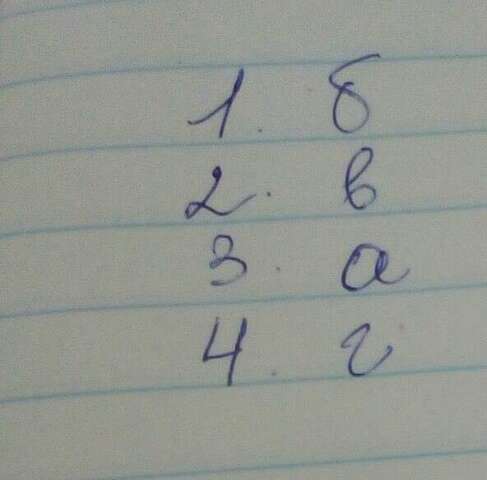 1. б
2. в
3. а
4. г